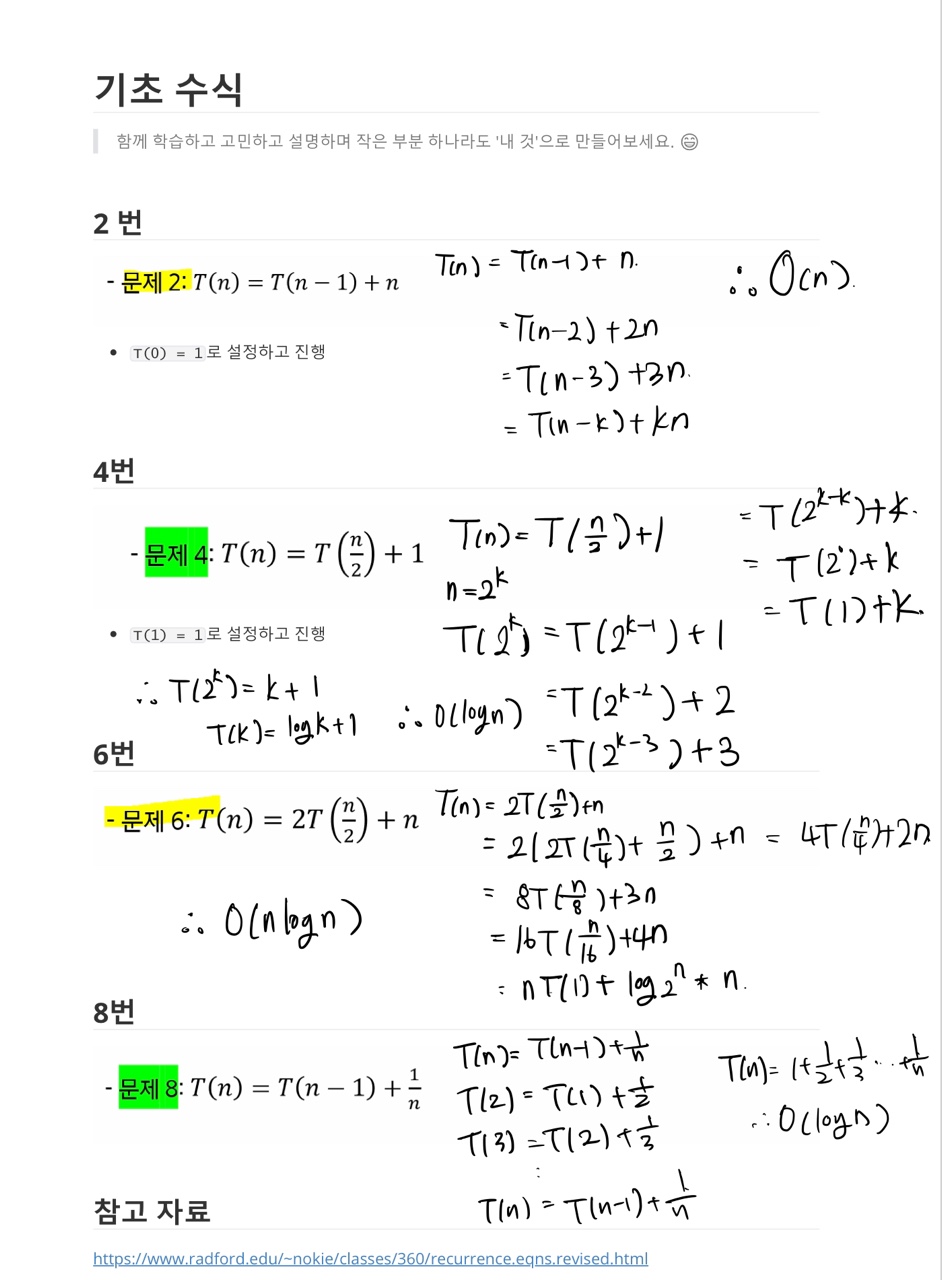 기초 수식
함께 학습하고 고민하고 설명하며 작은 부분 하나라도 '내 것'으로 만들어보세요. 😄
2 번
- 문제 2: T(n) = T(n − 1) + n
T(n) = T(n-1) + n.
= T(n-2) + 2n
= T(n-3) + 3n.
= T(n-k) + kn
∴ O(n).
• T(0) = 1로 설정하고 진행
4번
- 문제 4: T(n) = T(n/2) + 1
T(n) = T(n/2) + 1
n = 2^k
T(2^k) = T(2^(k-1)) + 1
= T(2^(k-2)) + 2
= T(2^(k-3)) + 3
= T(2^(k-k)) + k.
= T(2^0) + k
= T(1) + k.
• T(1) = 1로 설정하고 진행
∴ T(2^k) = k + 1
T(k) = logk + 1
∴ O(logn)
6번
- 문제 6: T(n) = 2T(n/2) + n
T(n) = 2T(n/2) + n
= 2(2T(n/4) + n/2) + n = 4T(n/4) + 2n
= 8T(n/8) + 3n
= 16T(n/16) + 4n
= nT(1) + log2^n * n.
∴ O(nlogn)
8번
- 문제 8: T(n) = T(n − 1) + 1/n
T(n) = T(n-1) + 1/n
T(2) = T(1) + 1/2
T(3) = T(2) + 1/3
:
T(n) = T(n-1) + 1/n
T(n) = 1 + 1/2 + 1/3 ... + 1/n
∴ O(logn)
참고 자료
https://www.radford.edu/~nokie/classes/360/recurrence.eqns.revised.html